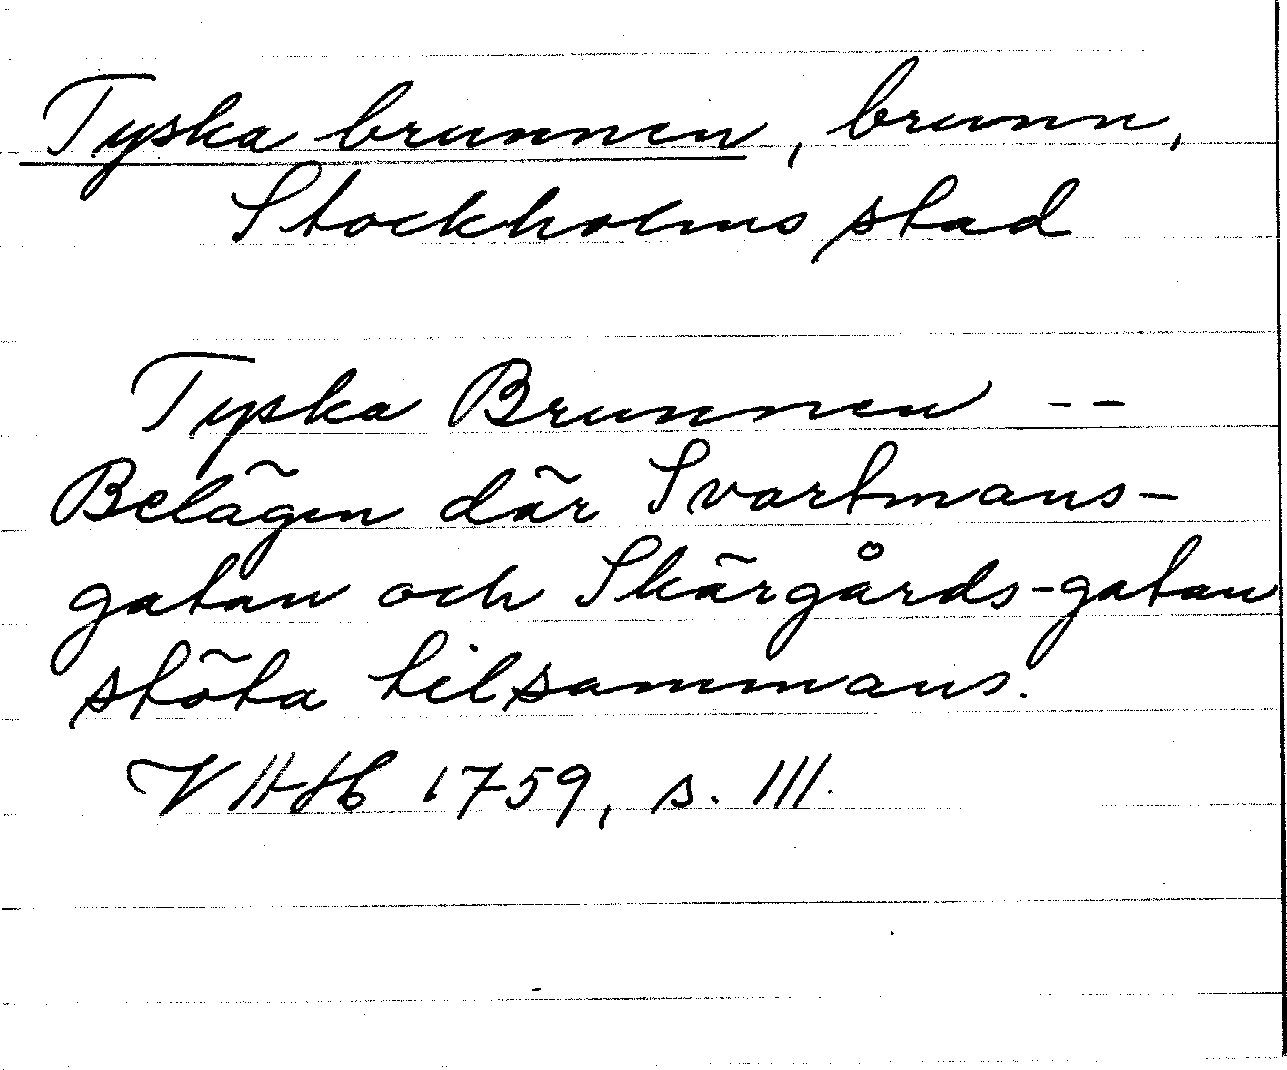 Tyska brunnen, brunn,
Stockholms stad
Tyska Brunnen --
Belägen där Svartmans-
gatan och Skärgårds-gatan
stöta tilsammans.
VHHb 1759, s. 111.